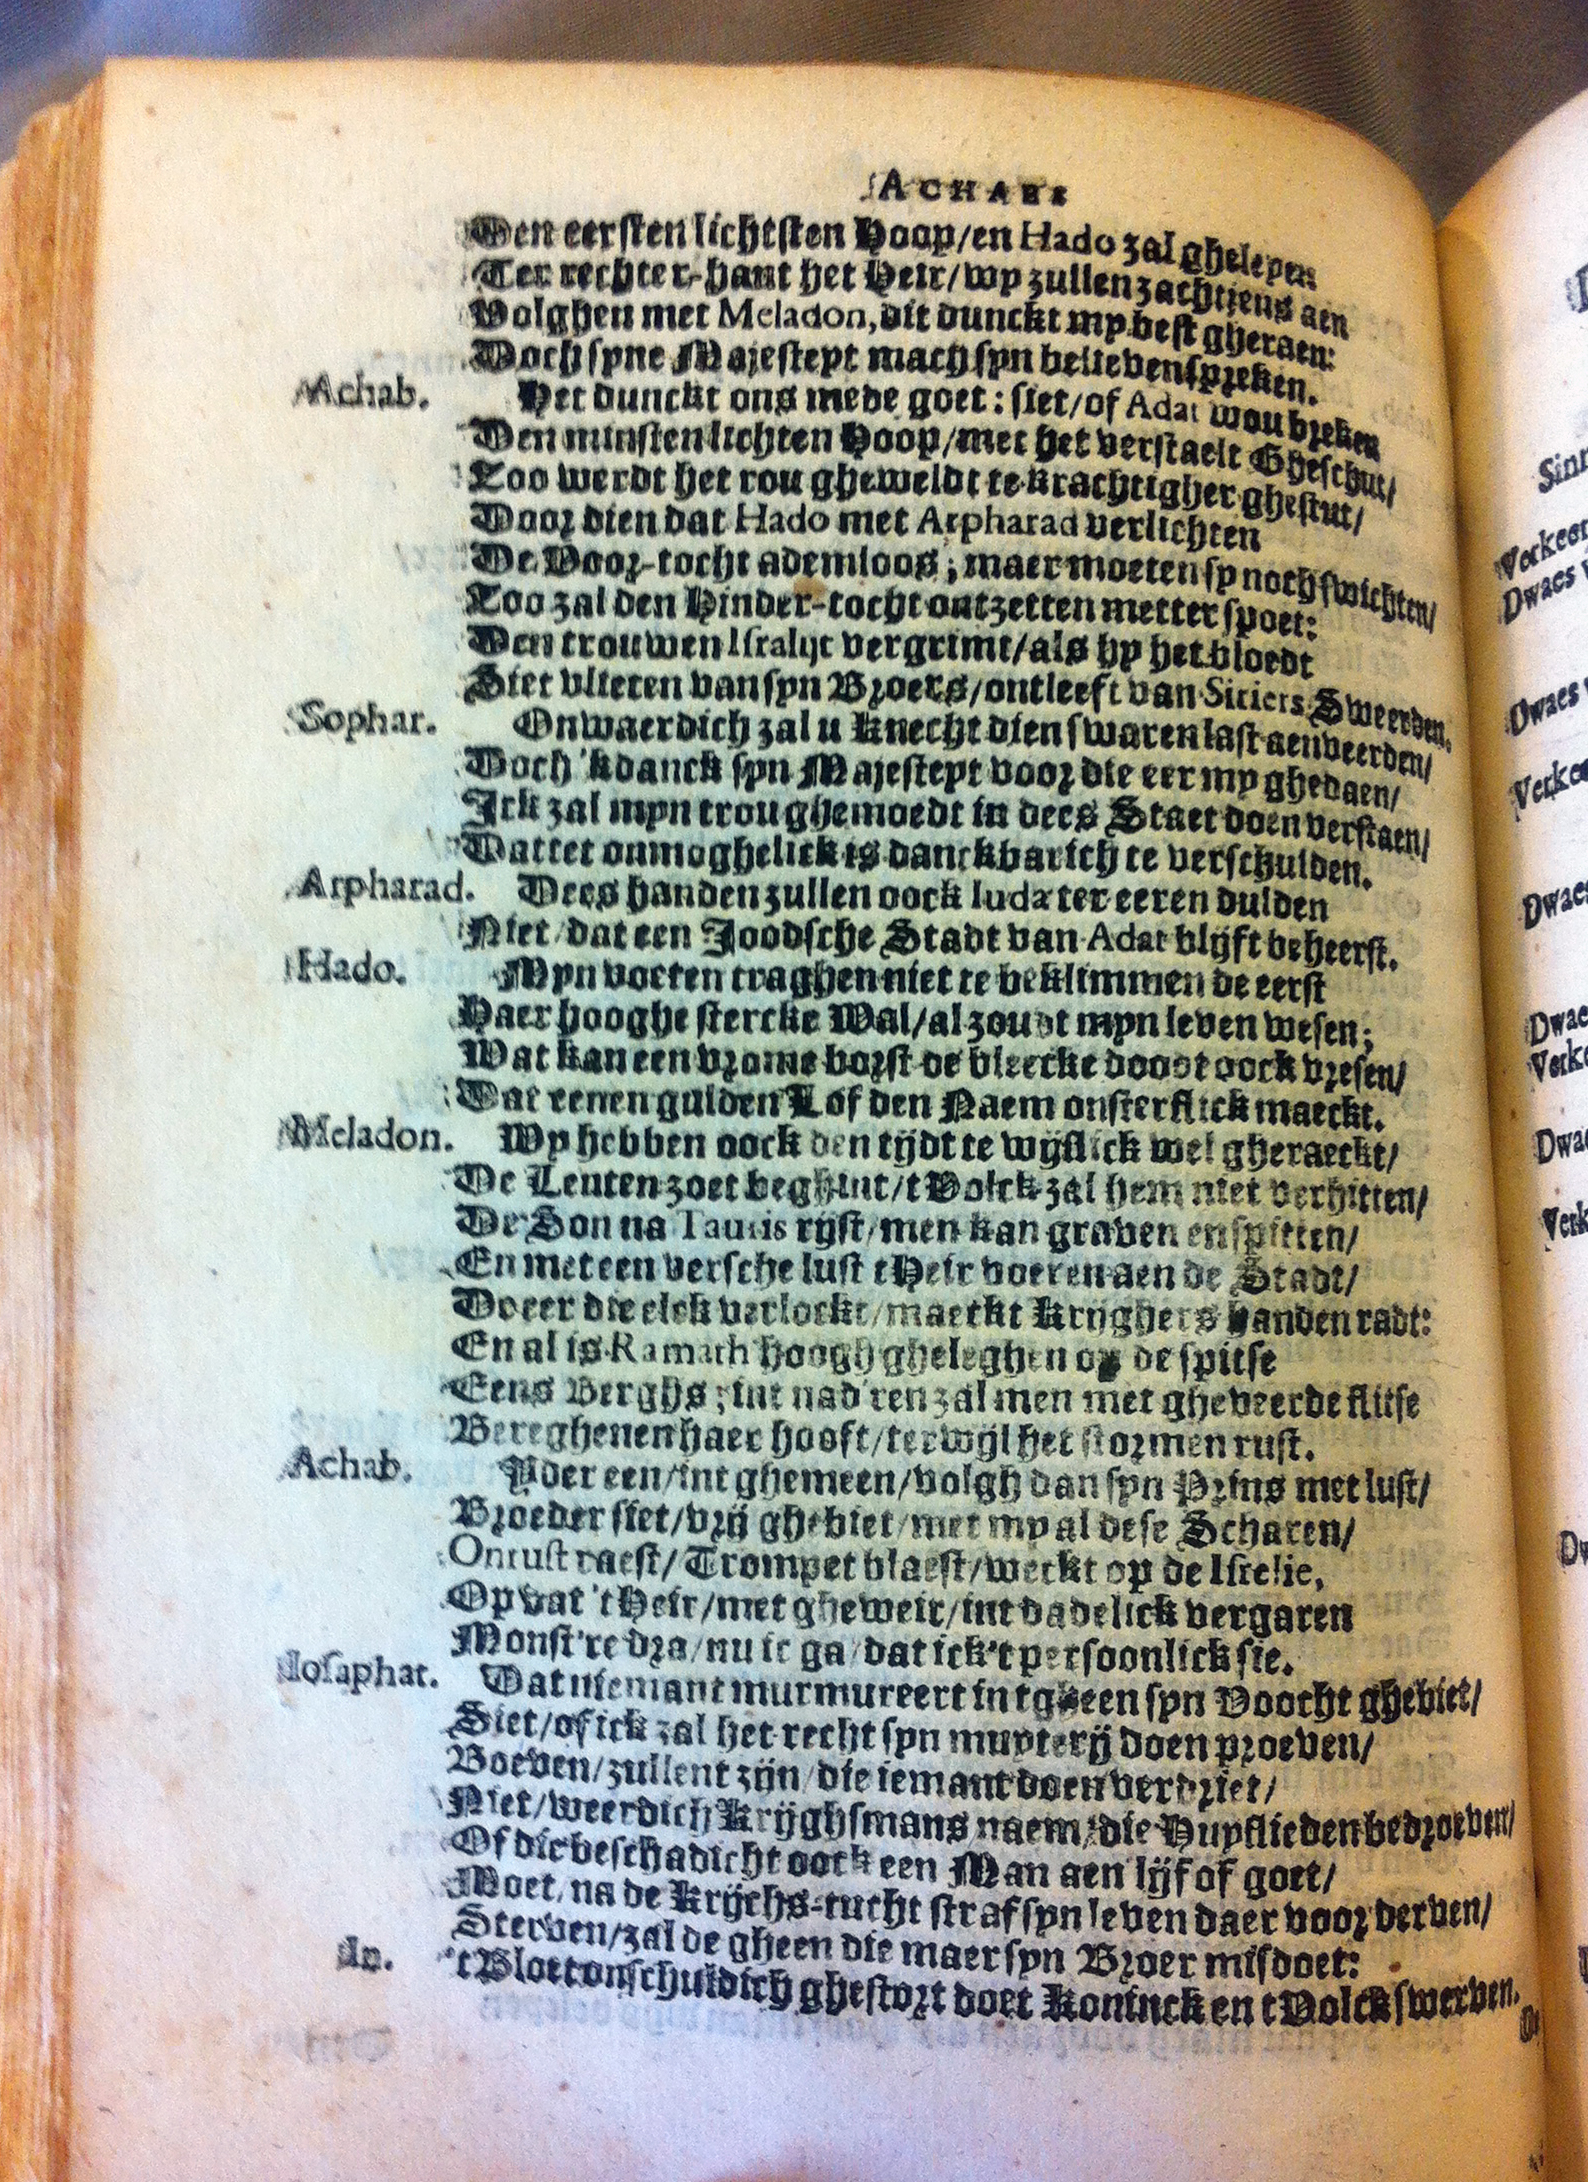 ACHABS
Den eersten lichtsten Hoop/en Hado zal gheleyen
Ter rechter-hant het Heir/wy zullen zachtjens aen
Volghen met Meladon, dit dunckt my best gheraen:
Doch syne Majesteyt mach syn believen spreken.
Achab. Het dunckt ons mede goet: siet/of Adat wou breken
Den minsten lichten Hoop/met het verstaelt Gheschut/
Zoo werdt het rou gheweldt te krachtigher ghestut/
Door dien dat Hado met Arpharad verlichten
De Voor-tocht ademloos; maer moeten sy noch swichten/
Zoo zal den Hinder-tocht ontzetten metter spoet:
Den trouwen Isralijt vergrimt/als hy het bloedt
Siet vlieten van syn Broers/ontleeft van Siriers Sweerden.
Sophar. Onwaerdich zal u knecht dien swaren last aenveerden/
Doch 'kdanck syn Majesteyt voor die eer my ghedaen/
Ick zal myn trou ghemoedt in dees Staet doen verstaen/
Dattet onmoghelick is danckbarich te verschulden.
Arpharad. Dees handen zullen oock Iuda ter eeren dulden
Niet/dat een Joodsche Stadt van Adat blijft beheerst.
Hado. Myn voeten traghen niet te beklimmen de eerst
Haer hooghe stercke Wal/al zoudt myn leven wesen;
Wat kan een vrome borst de bleecke doodt oock vresen/
Dat eenen gulden Lof den Naem onsterflick maeckt.
Meladon. Wy hebben oock den tijdt te wijslick wel gheraeckt/
De Lenten zoet beghint/t Volck zal hem niet verhitten/
De Son na Tauris rijst/men kan graven en spitten/
En met een versche lust t Heir voeren aen de Stadt/
De eer die elck verlockt/maeckt Krijghers handen radt:
En al is Ramath hoogh gheleghen op de spitse
Eens Berghs; int nad'ren zal men met gheveerde flitse
Bereghenen haer hooft/terwijl het stormen rust.
Achab. Yder een/int ghemeen/volgh dan syn Prins met lust/
Broeder siet/vrij ghebiet/met my al dese Scharen/
Onrust raest/Trompet blaest/weckt op de Isrelie,
Op dat 't Heir/met gheweir/int dadelick vergaren
Monst're dra/nu ic ga/dat ick't persoonlick sie.
Iosaphat. Dat niemant murmureert in tgheen syn Voocht ghebiet/
Siet/of ick zal het recht syn muyterij doen proeven/
Boeven/zullent zijn/die iemant doen verdriet/
Niet/weerdich Krijghsmans naem/die Huyslieden bedroeven/
Of die beschadicht oock een Man aen lijf of goet/
Moet/na de Krijchs-tucht straf syn leven daer voor derven/
Sterven/zal de gheen die maer syn Broer misdoet:
In. 't Bloet onschuldich ghestort doet Koninck en t Volck swerven.